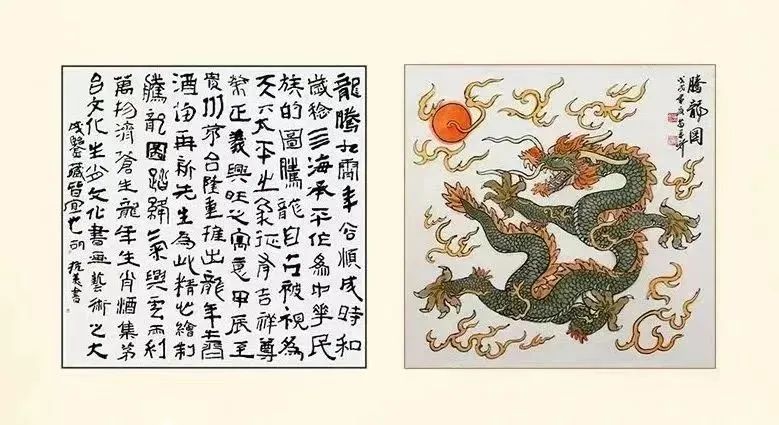 龍騰九霄年谷順成時和
歲稔三海承平作為中華民
族的圖騰龍自古被視為
天下太平之象征有吉祥尊
榮正義興旺之寓意甲辰至
貴州茅台隆重推出龍年生肖
酒伯再新先生為此精心繪制
騰龍圖蹈 乘興雲雨利
萬物濟蒼生龍年生肖酒集茅
台文化生肖文化書畫藝術之大
成鑒藏皆宜也 胡抗美書
騰龍圖